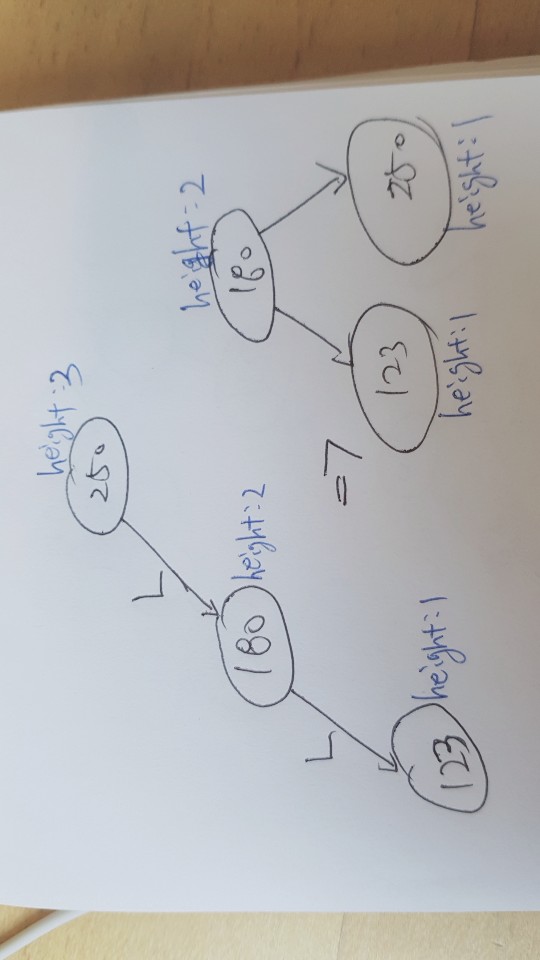 height:3
250
L
180
height:2
L
123
height:1
=>
height:2
180
123
height:1
250
height:1